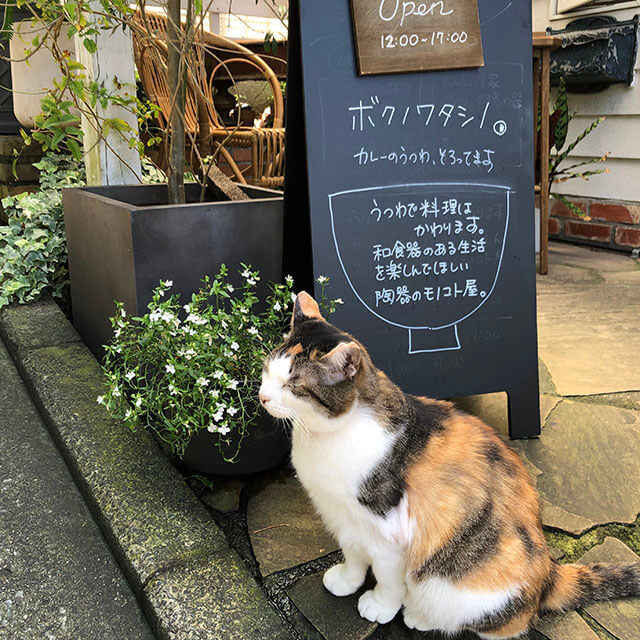 Open
12:00-17:00
ボクノワタシノ。
カレーのうつわ、そろってます
うつわで料理は
かわります。
和食器のある生活
を楽しんでほしい
陶器のモノコト屋。